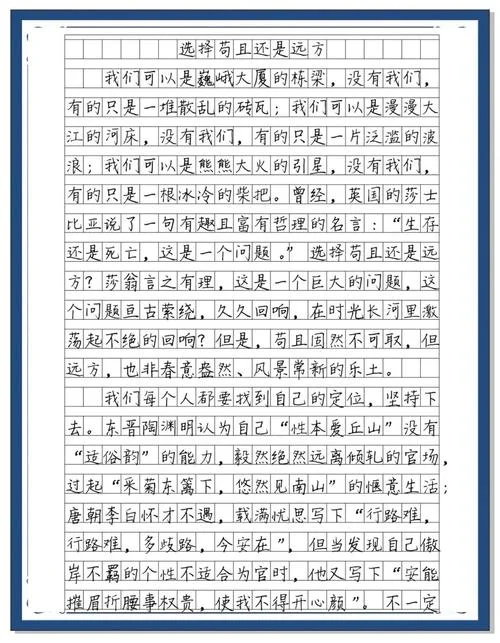 选择苟且还是远方
我们可以是巍峨大厦的栋梁，没有我们，
有的只是一堆散乱的砖瓦；我们可以是漫漫大
江的河床，没有我们，有的只是一片泛滥的波
浪；我们可以是熊熊大火的引星，没有我们，
有的只是一根冰冷的柴把。曾经，英国的莎士
比亚说了一句有趣且富有哲理的名言：“生存
还是死亡，这是一个问题。”选择苟且还是远
方？莎翁言之有理，这是一个巨大的问题，这
个问题亘古萦绕，久久回响，在时光长河里激
荡起不绝的回响？但是，苟且固然不可取，但
远方，也非春意盎然、风景常新的乐土。
我们每个人都要找到自己的定位，坚持下
去。东晋陶渊明认为自己“性本爱丘山”没有
“适俗韵”的能力，毅然绝然远离倾轧的官场，
过起“采菊东篱下，悠然见南山”的惬意生活；
唐朝李白怀才不遇，载满忧思写下“行路难，
行路难，多歧路，今安在”，但当发现自己傲
岸不羁的个性不适合为官时，他又写下“安能
摧眉折腰事权贵，使我不得开心颜”。不一定